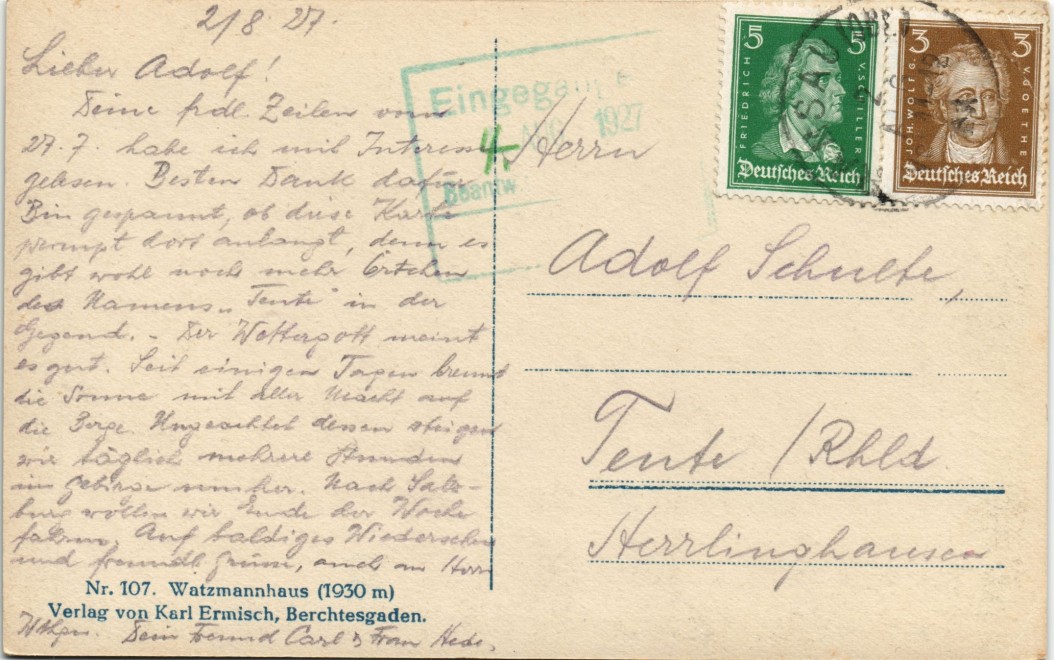 2/8. 27.
Lieber Adolf!
Deine frdl. Zeilen vom
27.7. habe ich mit Interesse
gelesen. Besten Dank dafür.
Bin gespannt, ob diese Karte
prompt dort anlangt, denn es
gibt wohl noch mehr Örtchen
des Namens „Tente" in der
Gegend. – Der Wettergott meint
es gut. Seit einigen Tagen brennt
die Sonne mit aller Macht auf
die Berge. Ungeachtet dessen steigen
wir täglich mehrere Stunden
im Gebirge umher. Nach Salz-
burg wollen wir Ende der Woche
fahren. Auf baldiges Wiedersehen
und freundl. Grüsse, auch an Herrn
Dein Freund Carl & Frau Hede.
Nr. 107. Watzmannhaus (1930 m)
Verlag von Karl Ermisch, Berchtesgaden.
Eingegan
4. 1927
Beantw
Herrn
Adolf Schulte,
Tente / Rhld.
Herrlinghausen
5 5
FRIEDRICH V. SCHILLER
Deutsches Reich
3 3
JOH. WOLFG. V. GOETHE
Deutsches Reich